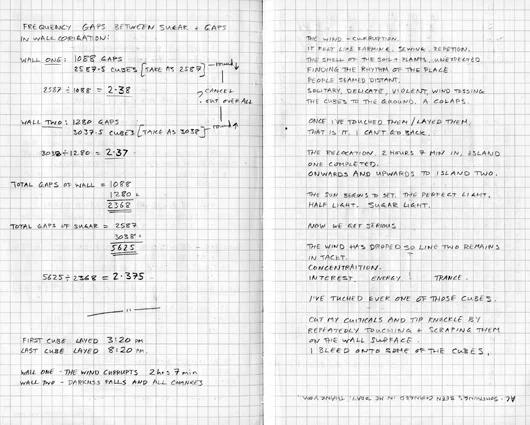 FREQUENCY GAPS BETWEEN SUGAR + GAPS
IN WALL
WALL ONE: 1088 GAPS
2587.5 CUBES [TAKE AS 2587] round ↓
2587 ÷ 1088 = 2.38
? CANCEL
OUT OVERALL
WALL TWO: 1280 GAPS
3037.5 CUBES [TAKE AS 3038] round ↑
3038 ÷ 1280 = 2.37
TOTAL GAPS OF WALL = 1088
1280 +
2368
TOTAL GAPS OF SUGAR = 2587
3038 +
5625
5625 ÷ 2368 = 2.375
FIRST CUBE LAYED 3:20 PM
LAST CUBE LAYED 8:20 PM.
WALL ONE - THE WIND CURRUPTS 2 hrs 7 min
WALL TWO - DARKNSS FALLS AND ALL CHANGES
THE WIND - CURRUPTION.
IT FELT LIKE FARMING. SEWING. REPETION.
THE SMELL OF THE SOIL + PLANTS. UNEXPECTED
FINDING THE RHYTHM OF THE PLACE
PEOPLE SEAMED DISTANT.
SOLITARY, DELICATE, VIOLENT, WIND TOSSING
THE CUBES TO THE GROUND. A COLAPS.
ONCE I'VE TOUCHED THEM / LAYED THEM,
THAT IS IT. I CANT GO BACK.
THE RELOCATION. 2 HOURS 7 MIN IN, ISLAND
ONE COMPLETED.
ONWARDS AND UPWARDS TO ISLAND TWO.
THE SUN BEGINS TO SET. THE PERFECT LIGHT,
HALF LIGHT. SUGAR LIGHT.
NOW WE GET SERIOUS
THE WIND HAS DROPED SO LINE TWO REMAINS
IN TACET.
CONCENTRAITION.
INTEREST. ENERGY! TRANCE.
I'VE TUCHED EVER ONE OF THOSE CUBES.
CUT MY CUITICALS AND TIP KNACKLE BY
REPEATEDLY TOUCHING + SCRAPING THEM
ON THE WALL SURFACE.
I BLEED ONTO SOME OF THE CUBES,
SOMETHING'S BEEN CHANGED IN ME 2DAY. THANK YOU.